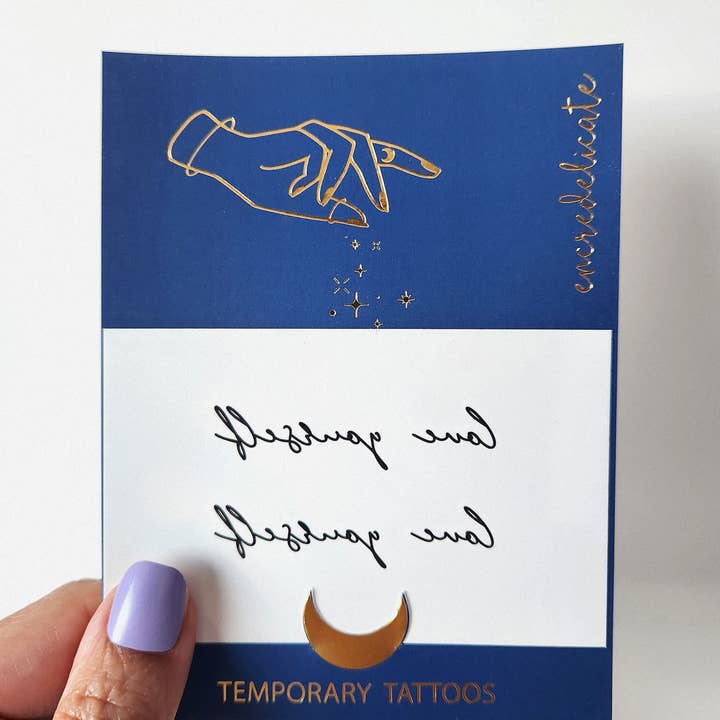 encredelicate
love yourself
love yourself
TEMPORARY TATTOOS